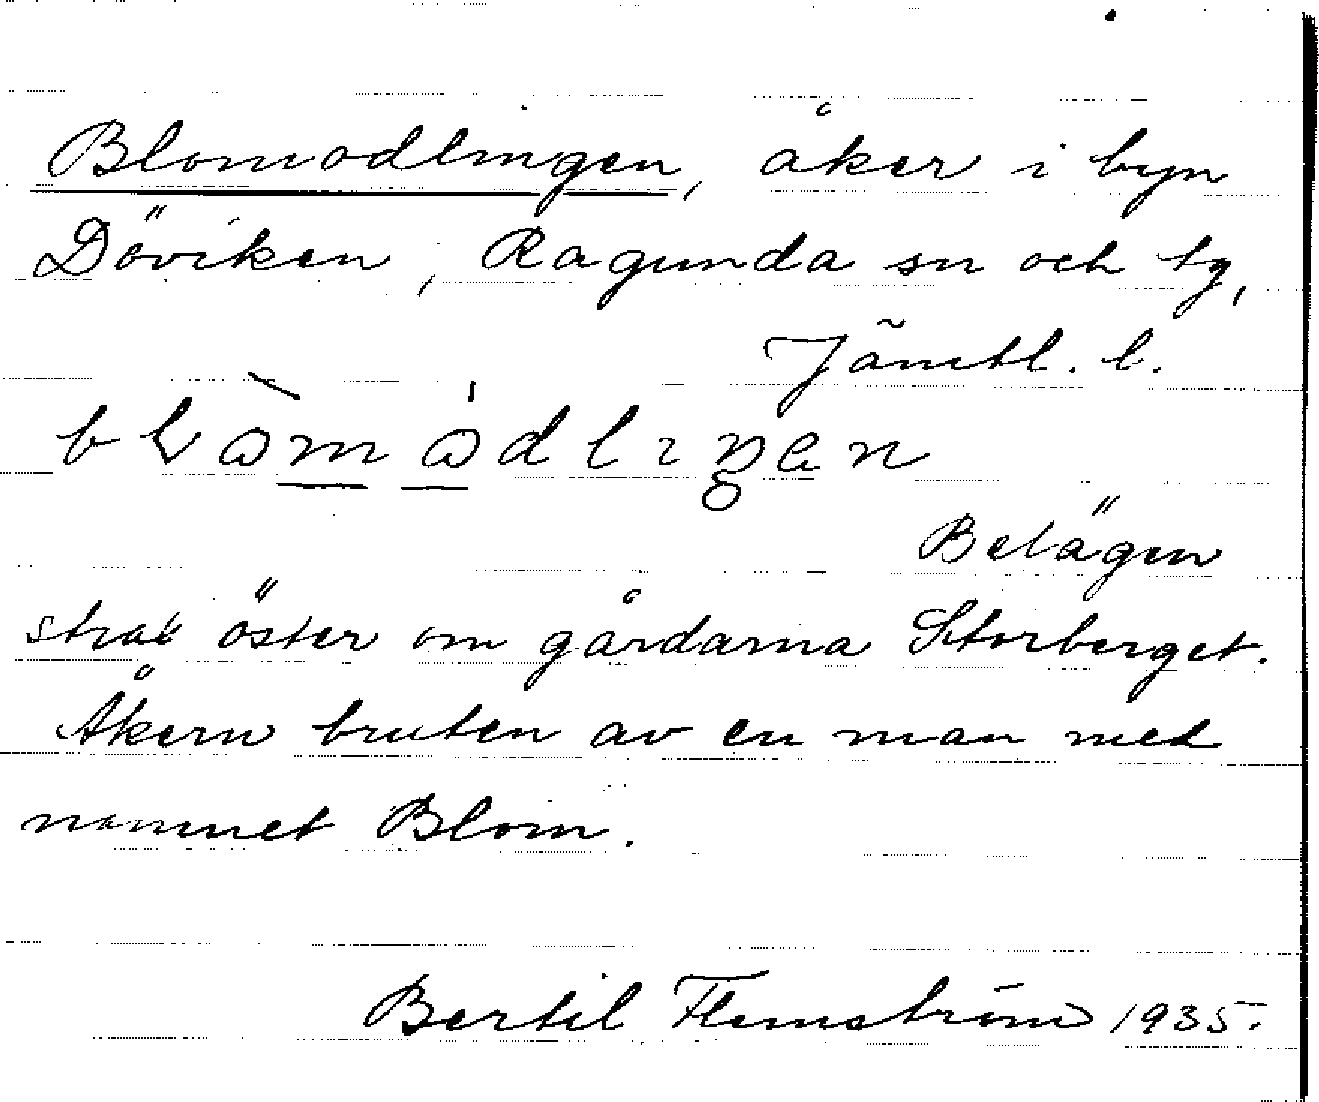 Blomodlingen, åker i byn
Döviken, Ragunda sn och tg,
Jämtl. l.
Belägen
strax öster om gårdarna Storberget.
Åkern bruten av en man med
namnet Blom.
Bertil Flemström 1935.